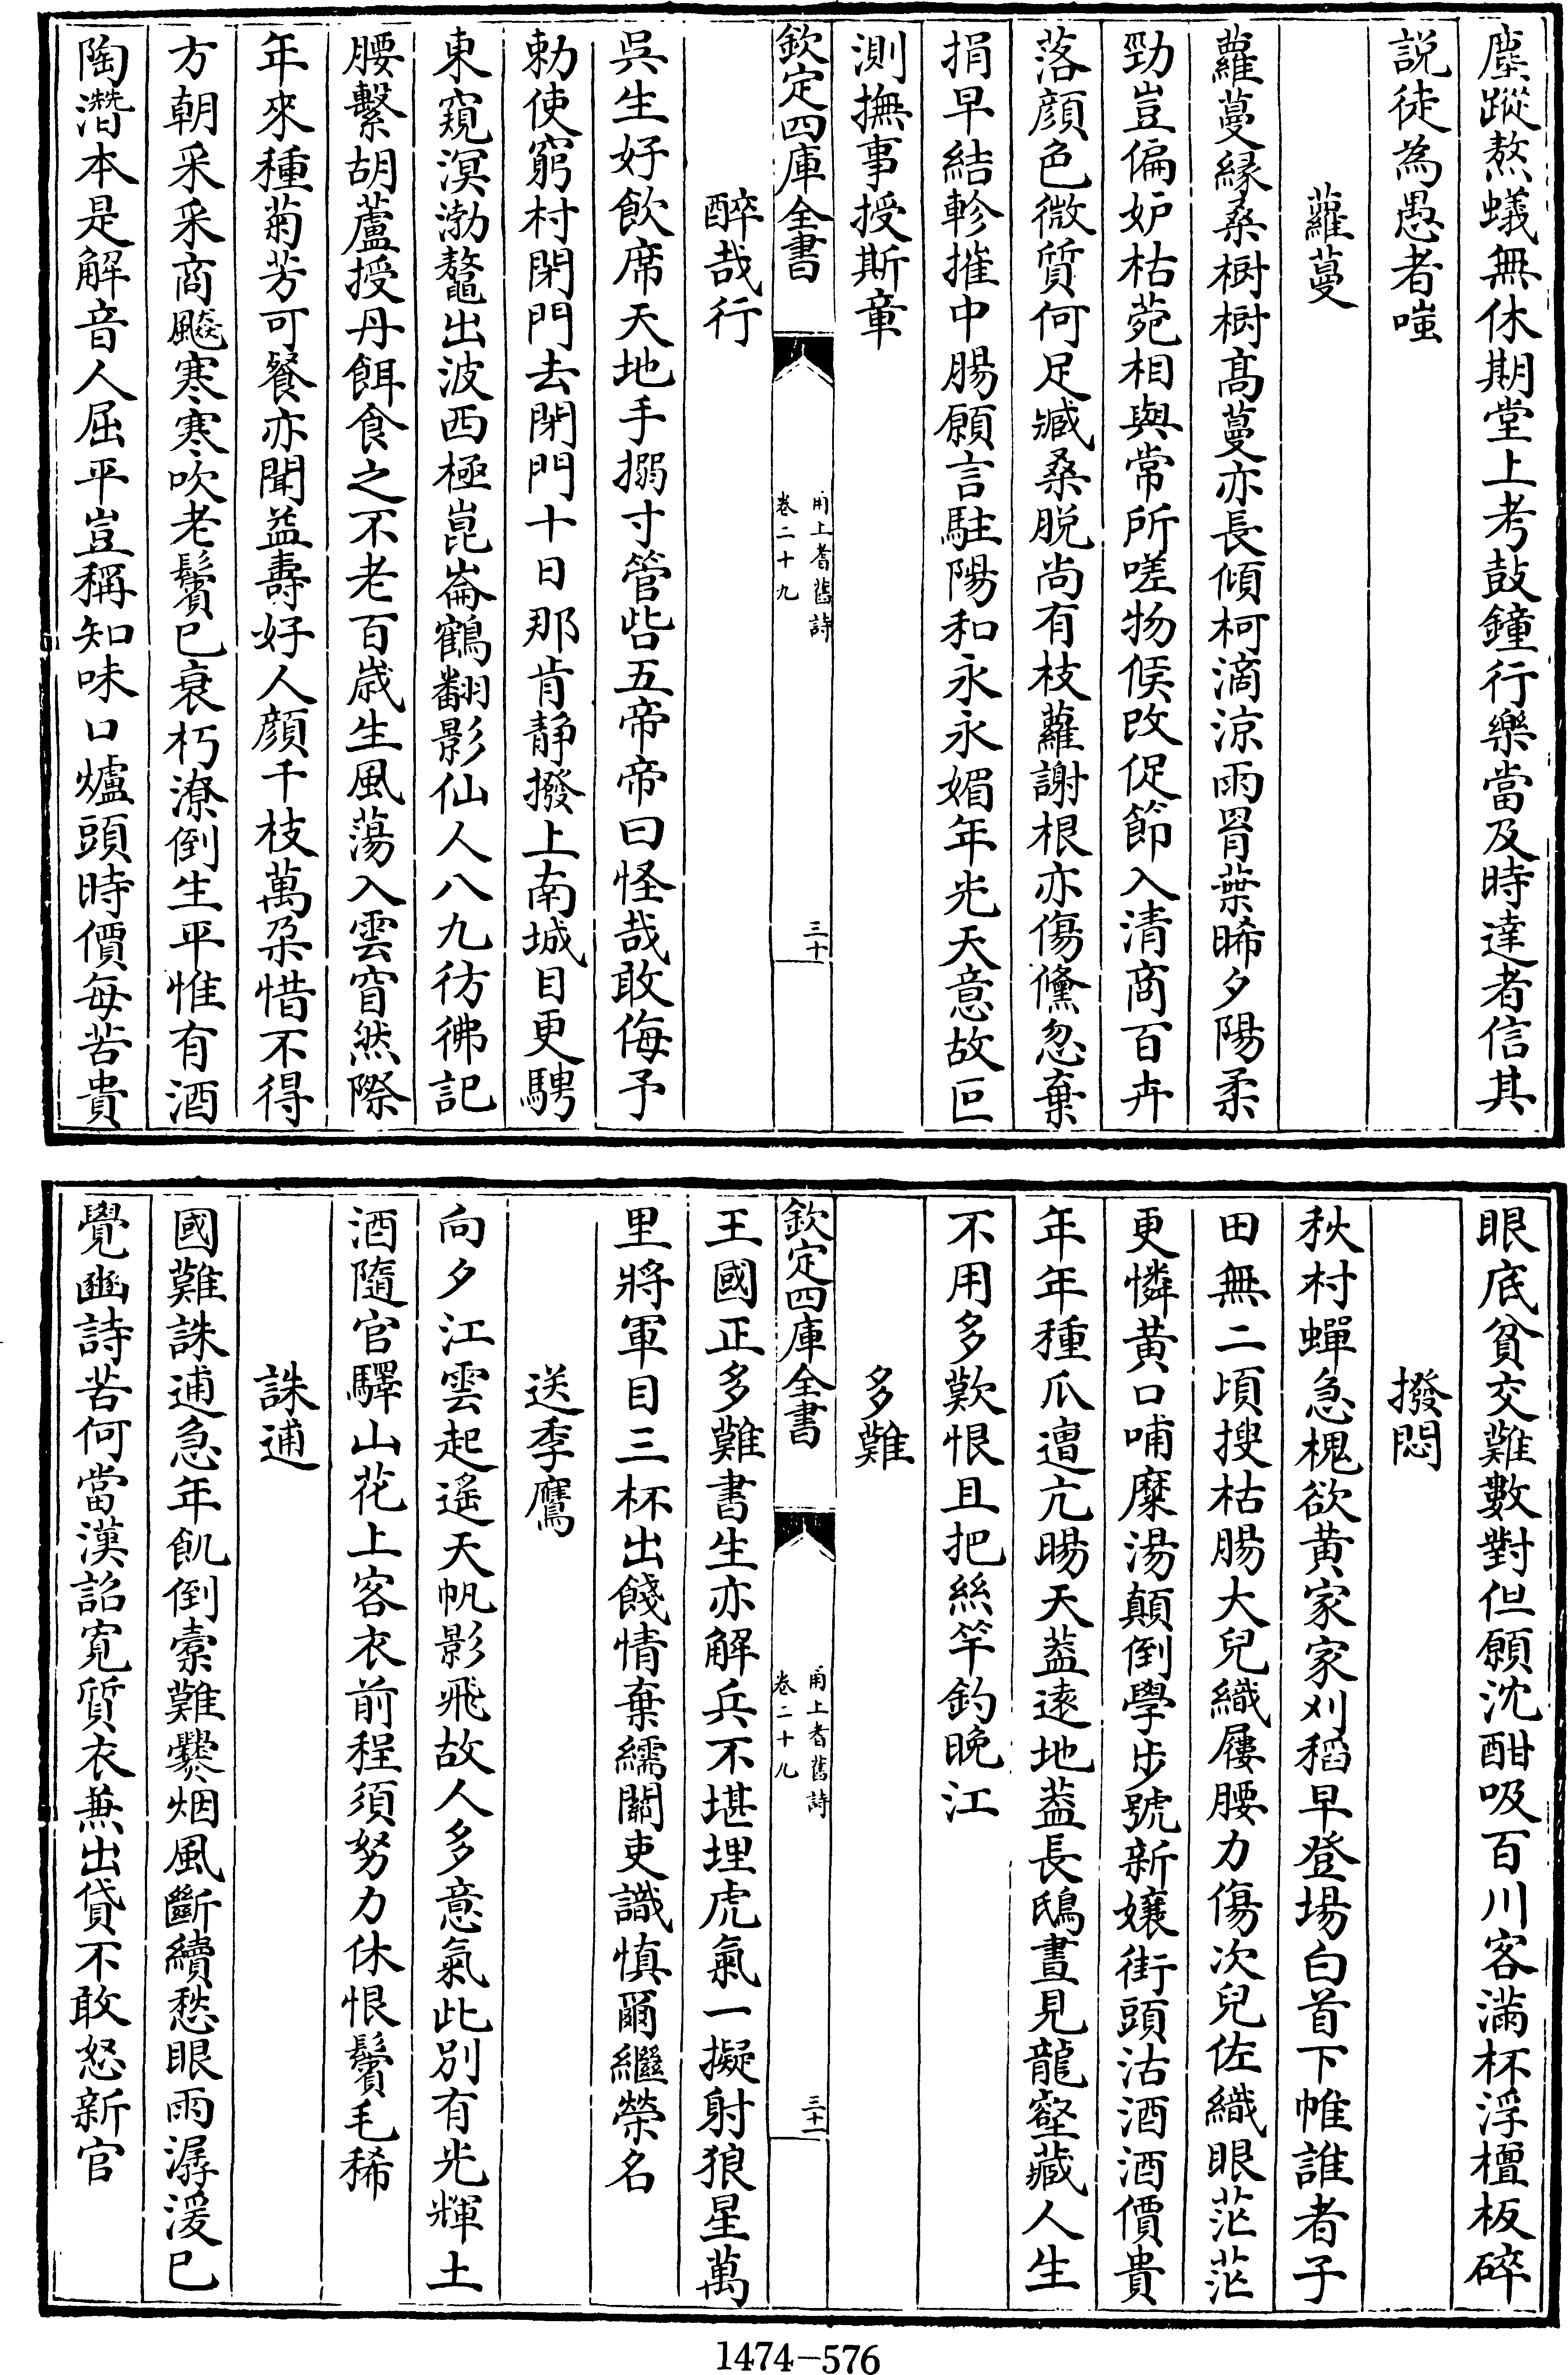 塵蹤熬蟻無休期堂上考鼓鐘行樂當及時達者信其
説徒為愚者嗤
蘿蔓
蘿蔓緣桑樹樹髙蔓亦長傾柯滴涼雨罥葉晞夕陽柔
勁豈偏妒枯菀相與常所嗟物候改促節入清商百卉
落顔色微質何足臧桑脱尚有枝蘿謝根亦傷儻忽棄
捐早結軫摧中腸願言駐陽和永永媚年光天意故叵
測撫事授斯章
欽定四庫全書
甬上耆舊詩
卷二十九
三十
醉哉行
吳生好飲席天地手搦寸管呰五帝帝曰怪哉敢侮予
勅使窮村閉門去閉門十日那肯靜撥上南城目更騁
東窺溟渤鼇出波西極崑崙鶴翻影仙人八九彷彿記
腰繫胡蘆授丹餌食之不老百歳生風蕩入雲窅然際
年來種菊芳可餐亦聞益壽好人顔千枝萬朶惜不得
方朝采采商飈寒寒吹老鬢已衰朽潦倒生平惟有酒
陶潛本是解音人屈平豈稱知味口爐頭時價每苦貴
眼底貧交難數對但願沈酣吸百川客滿杯浮檀板碎
撥悶
秋村蟬急槐欲黄家家刈稻早登場白首下帷誰者子
田無二頃搜枯腸大兒織屨腰力傷次兒佐織眼茫茫
更憐黄口哺糜湯顛倒學步號新孃街頭沽酒酒價貴
年年種瓜遭亢暘天蓋逺地蓋長鴟晝見龍壑藏人生
不用多歎恨且把絲竿釣晚江
多難
欽定四庫全書
甬上耆舊詩
卷二十九
三十一
王國正多難書生亦解兵不堪埋虎氣一擬射狼星萬
里將軍目三杯出餞情棄繻關吏識慎爾繼榮名
送季鷹
向夕江雲起遥天帆影飛故人多意氣此别有光輝土
酒隨官驛山花上客衣前程須努力休恨鬢毛稀
誅逋
國難誅逋急年飢倒橐難爨烟風斷續愁眼雨潺湲已
覺豳詩苦何當漢詔寛質衣兼出貸不敢怒新官
1474-576